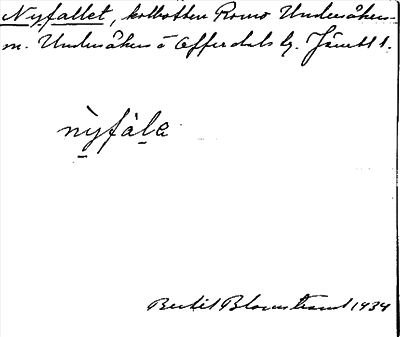 Nyfallet, kolbotten Romo Undersåkers-
m. Undersåkers s Offerdals tg. Jämtl l.
nỳfàla
Bertil Blomstrand 1934